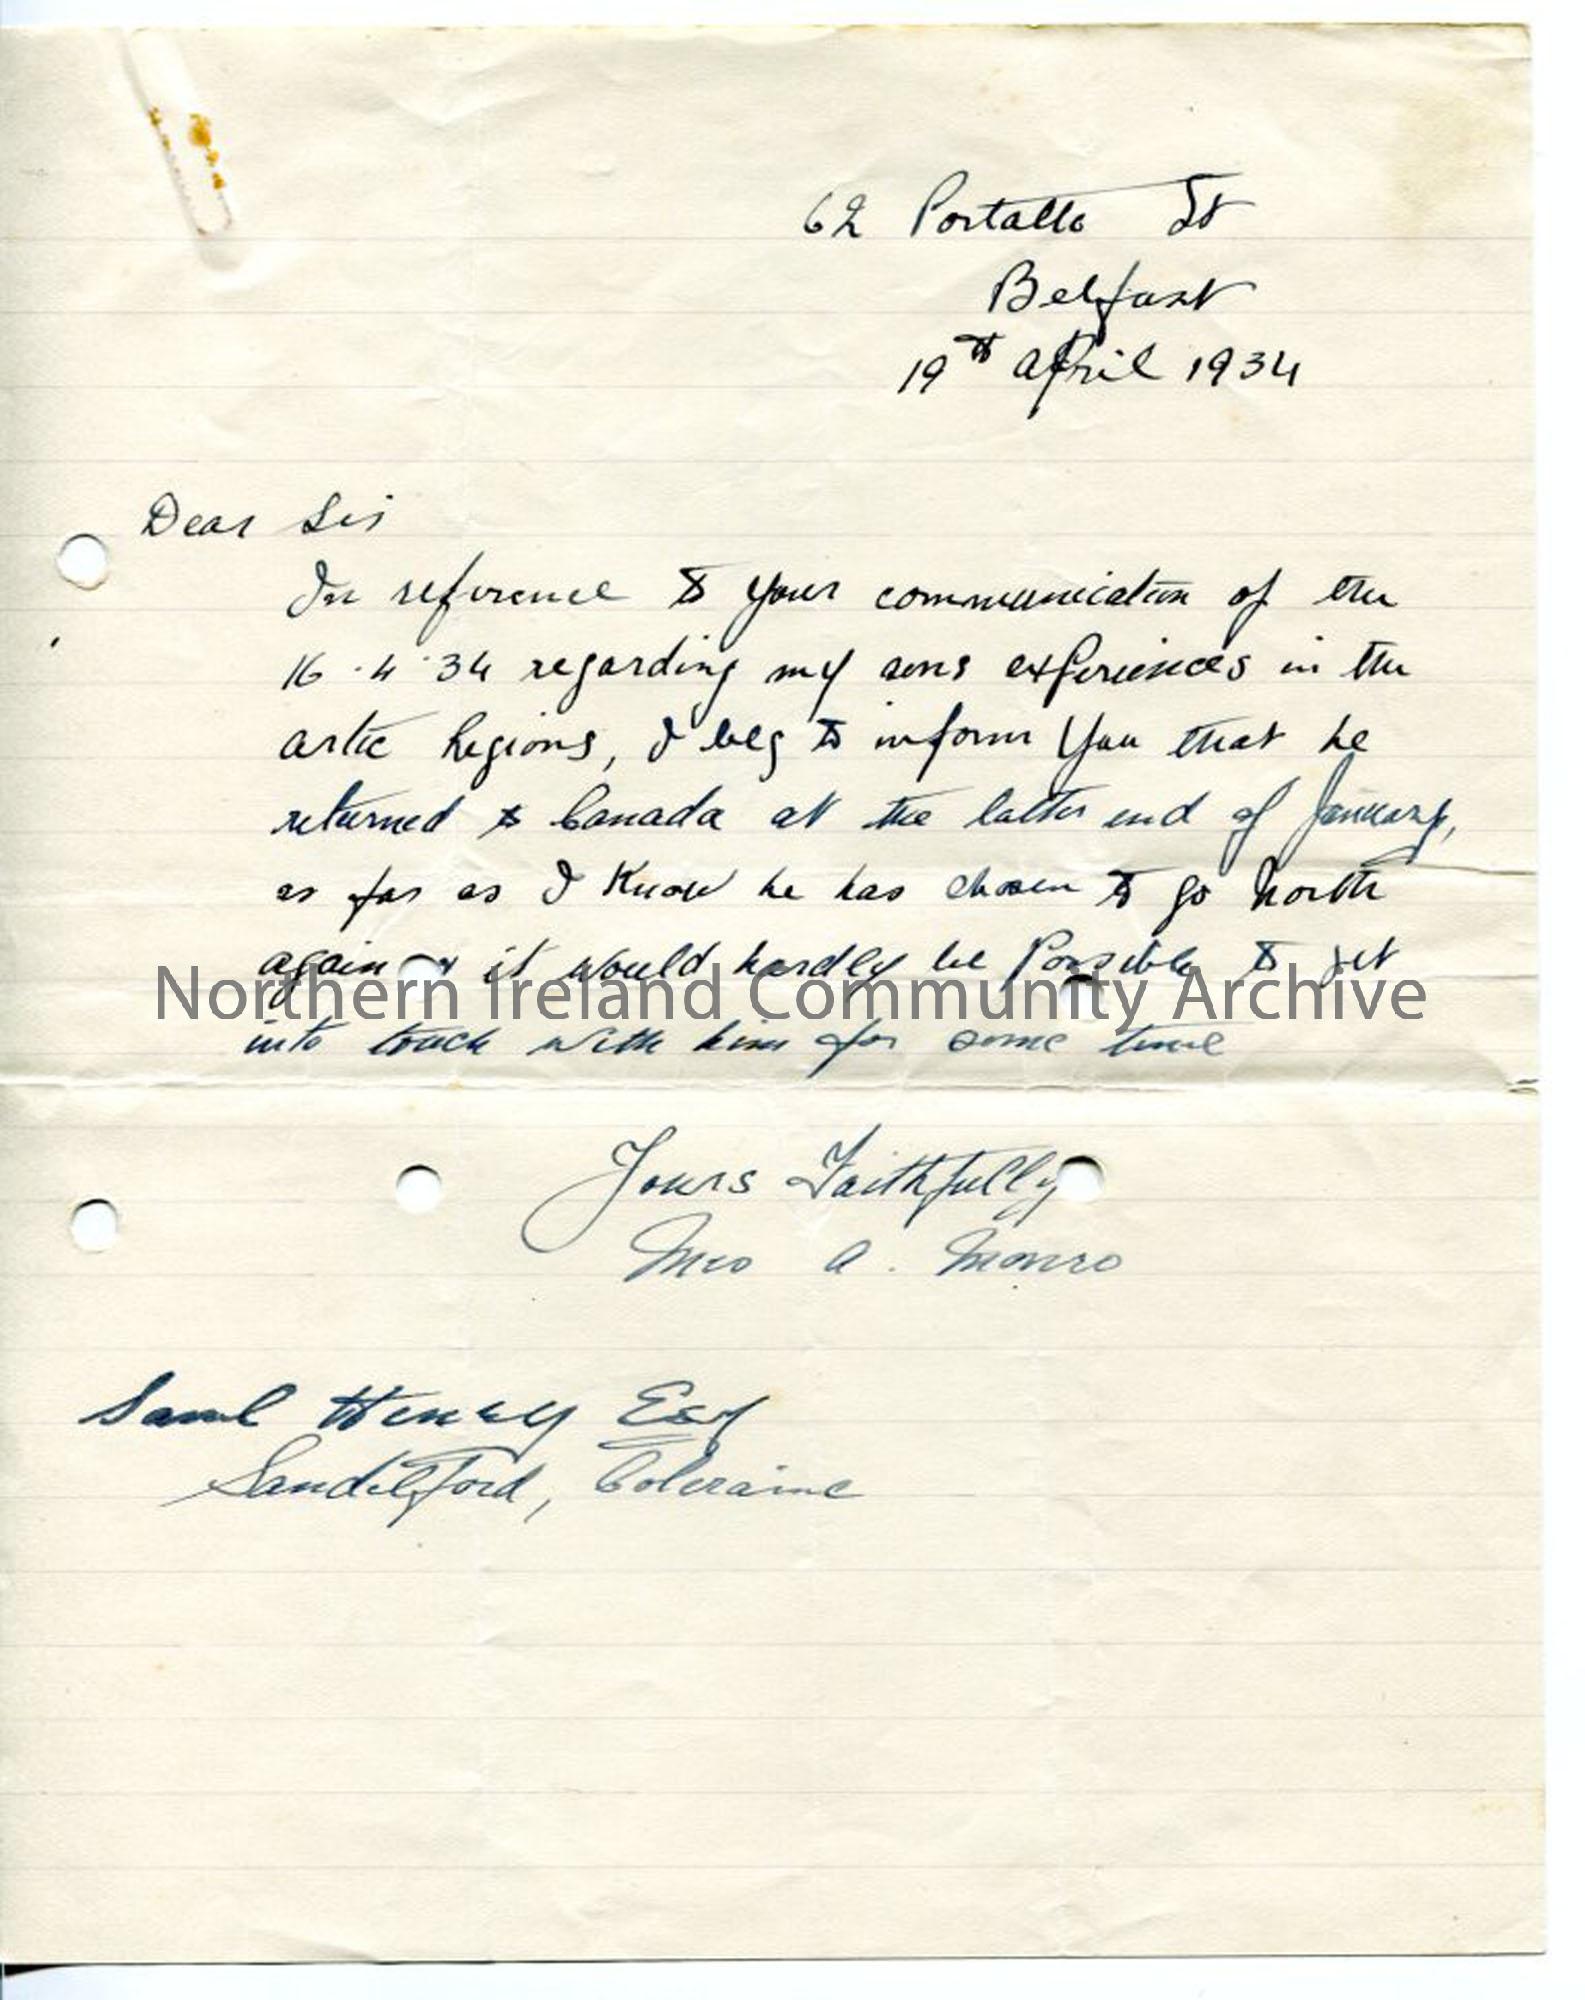 62 Portallo St
Belfast
19th April 1934
Dear Sir
In reference to your communication of the
16.4.34 regarding my sons experiences in the
artic Regions, I beg to inform you that he
returned to Canada at the latter end of January,
as far as I know he has chosen to go North
again it would hardly be Possible to get
Northern Ireland Community Archive
into touch with him for some time
Yours Faithfully
Mrs A. Monro
Saml Henry Esq
Sandelford, Coleraine